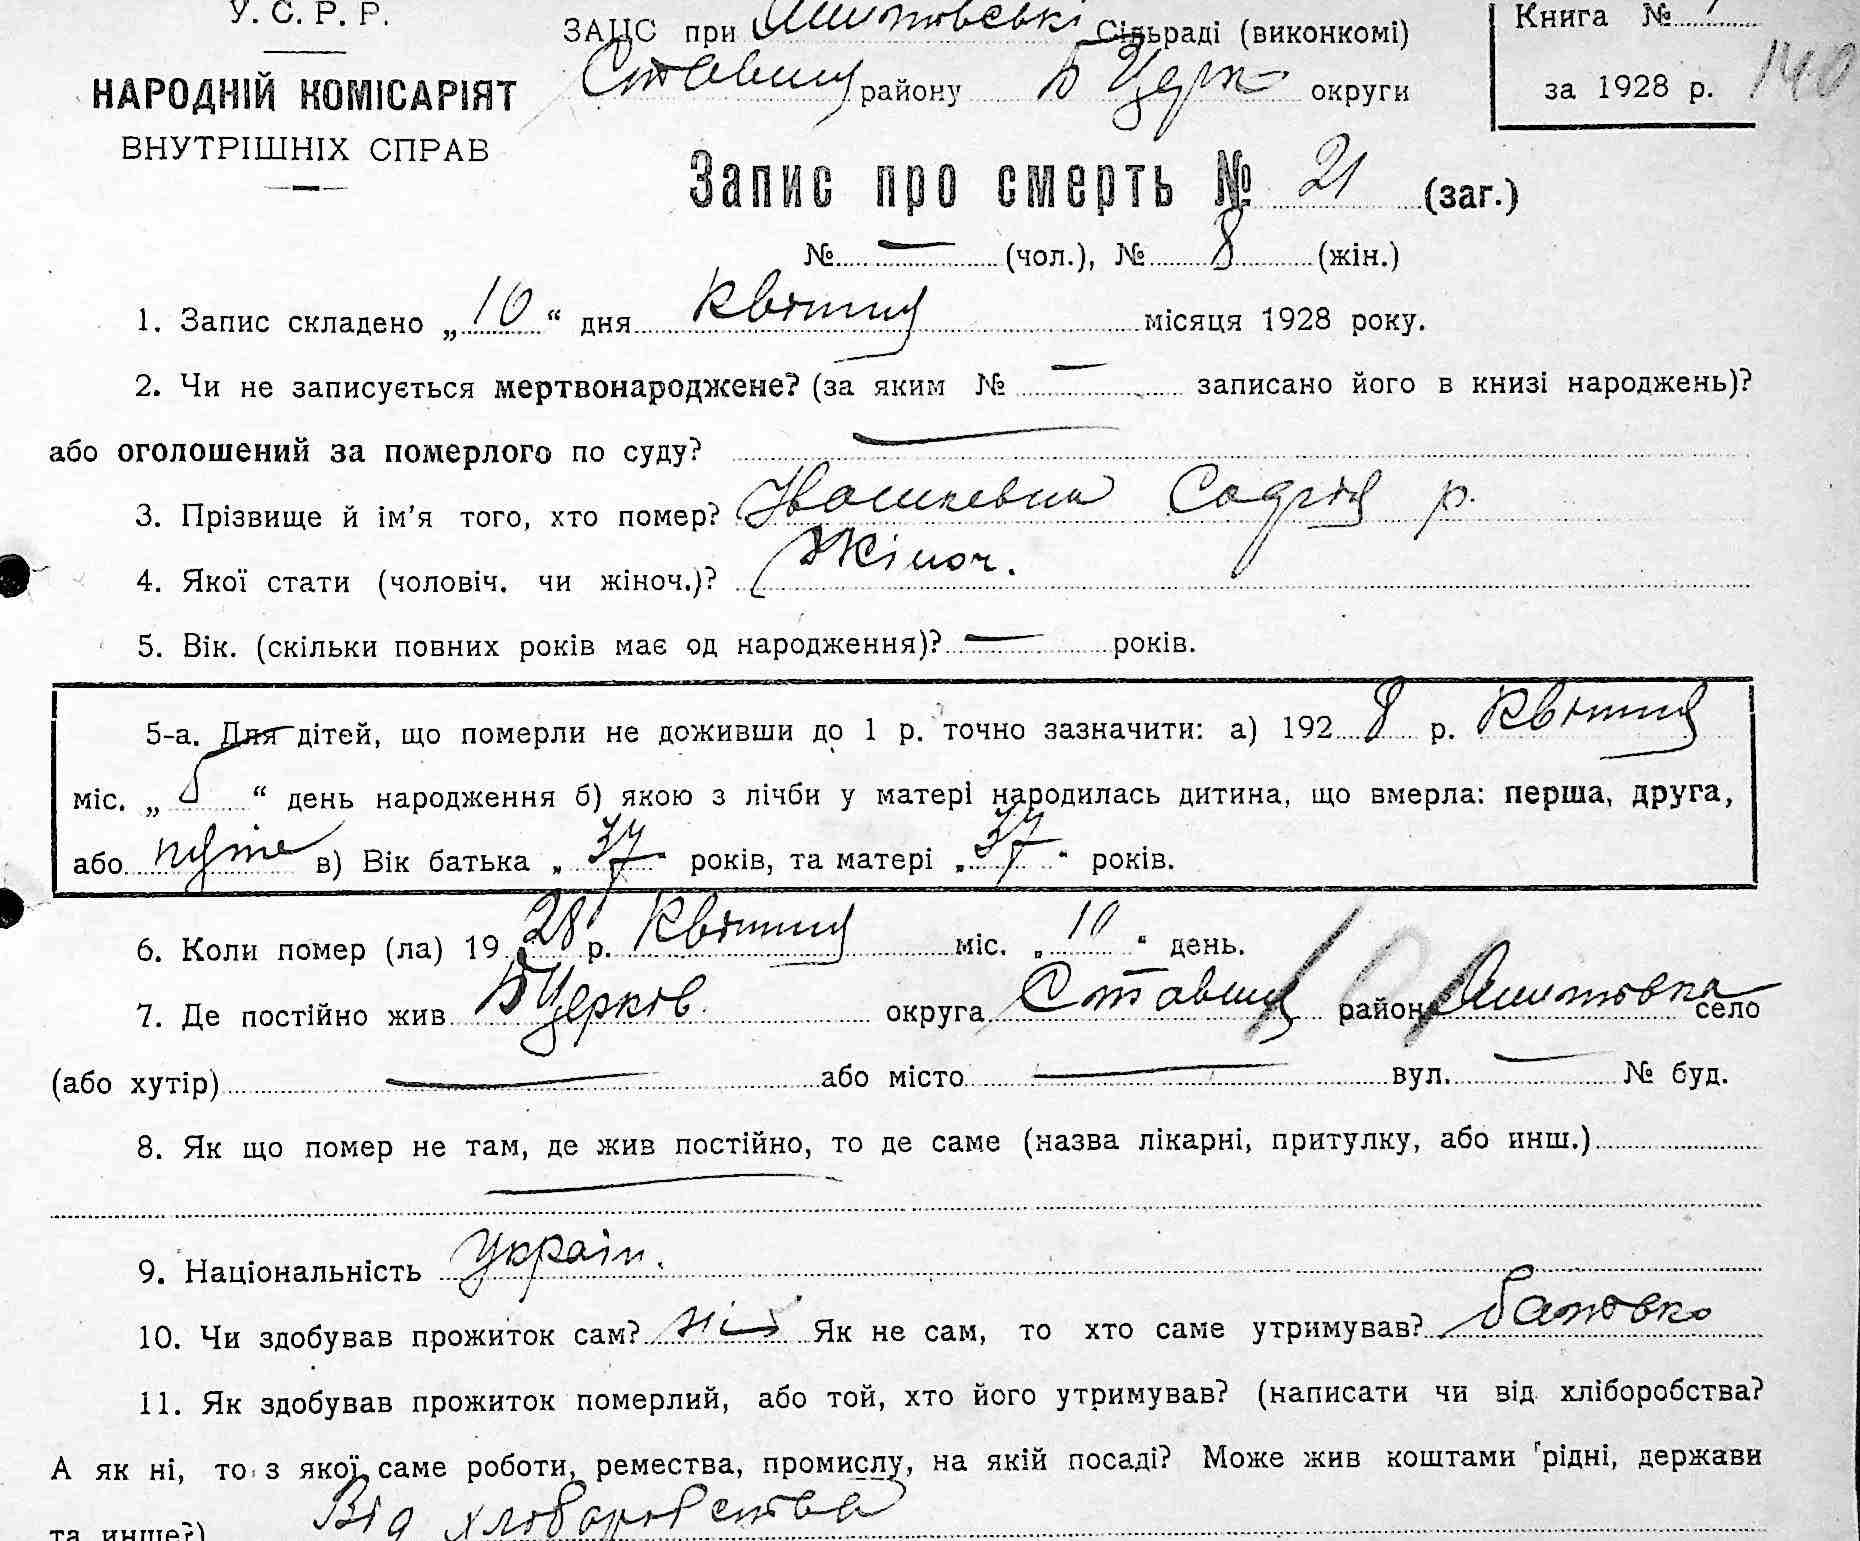 У. С. Р. Р.
НАРОДНІЙ КОМІСАРІЯТ
ВНУТРІШНІХ СПРАВ
ЗАЦС при Сільраді (виконкомі)
району Б Церк округи
Книга №
за 1928 р. 140
Запис про смерть № 21 (заг.)
№ — (чол.), № 8 (жін.)
1. Запис складено „10“ дня Квітня місяця 1928 року.
2. Чи не записується мертвонароджене? (за яким № — записано його в книзі народжень)?
або оголошений за померлого по суду? —
3. Прізвище й ім'я того, хто помер? Софія р.
4. Якої стати (чоловіч. чи жіноч.)? Жіноч.
5. Вік. (скільки повних років має од народження)? — років.
5-а. Для дітей, що померли не доживши до 1 р. точно зазначити: а) 1928 р. Квітня
міс. „ “ день народження б) якою з лічби у матері народилась дитина, що вмерла: перша, друга,
або пяте в) Вік батька „37“ років, та матері „37“ років.
6. Коли помер (ла) 1928 р. Квітня міс. „10“ день.
7. Де постійно жив Б Церків округа район село
(або хутір) — або місто — вул. — № буд.
8. Як що помер не там, де жив постійно, то де саме (назва лікарні, притулку, або инш.)
—
9. Національність Україн.
10. Чи здобував прожиток сам? ні Як не сам, то хто саме утримував? батько
11. Як здобував прожиток померлий, або той, хто його утримував? (написати чи від хліборобства?
А як ні, то з якої саме роботи, ремества, промислу, на якій посаді? Може жив коштами рідні, держави
та инше?) Від хліборобства